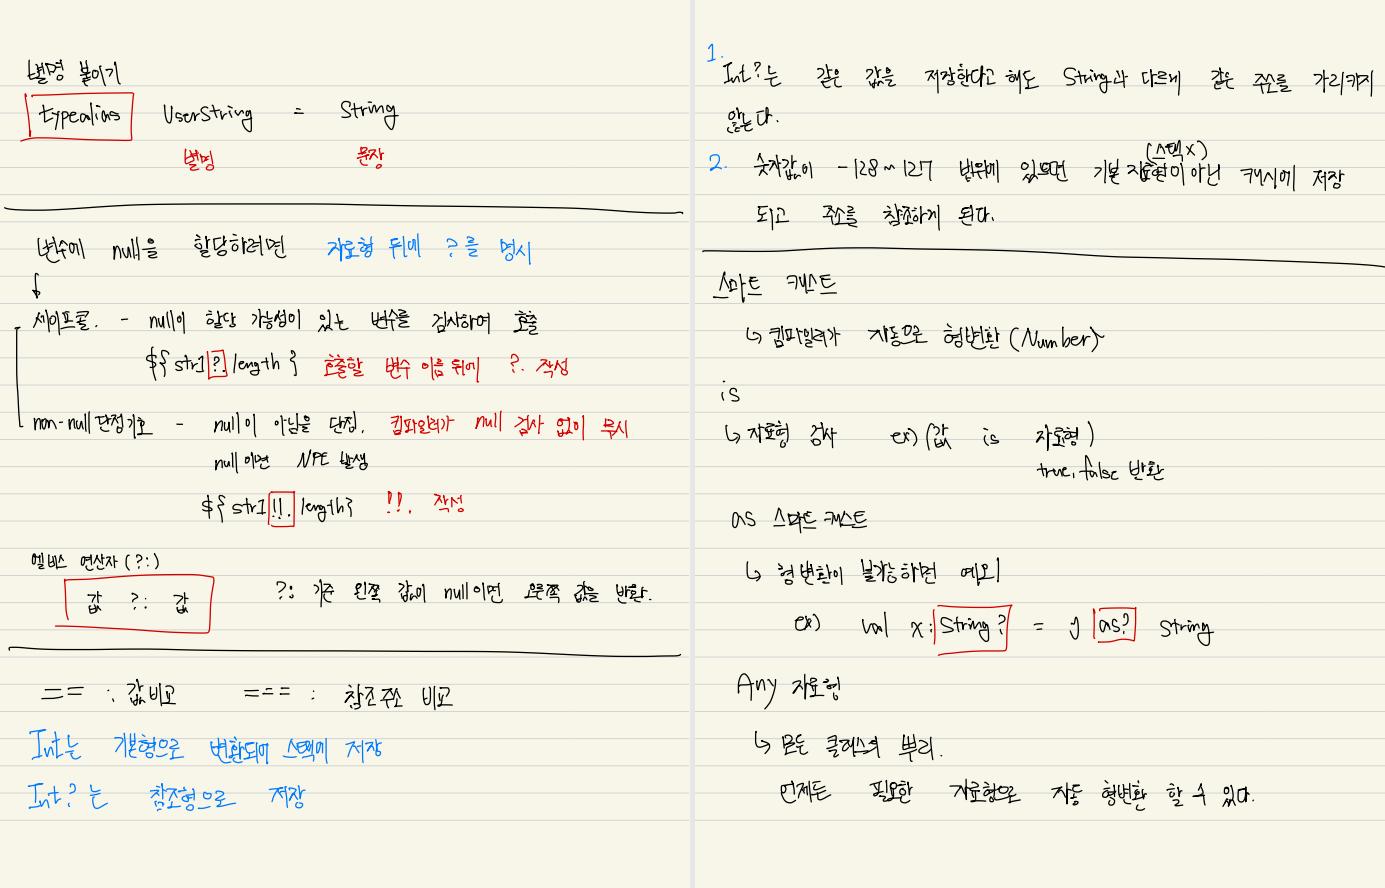 별명 붙이기
typealias UserString = String
별명 문장
변수에 null을 할당하려면 자료형 뒤에 ?를 명시
↓
세이프콜. - null이 할당 가능성이 있는 변수를 검사하여 호출
${str1?.length} 호출할 변수 이름 뒤에 ?. 작성
non-null 단정기호 - null이 아님을 단정. 컴파일러가 null 검사 없이 무시
null이면 NPE 발생
${str1!!.length} !!. 작성
엘비스 연산자 (?:)
값 ?: 값 ?: 기준 왼쪽 값이 null이면 오른쪽 값을 반환.
== : 값 비교 === : 참조 주소 비교
Int는 기본형으로 변환되어 스택에 저장
Int?는 참조형으로 저장
1.
Int?는 같은 값을 저장한다고 해도 String과 다르게 같은 주소를 가리키지
않는다.
(스택X)
2. 숫자값이 -128~127 범위에 있으면 기본 자료형이 아닌 캐시에 저장
되고 주소를 참조하게 된다.
스마트 캐스트
↳ 컴파일러가 자동으로 형변환 (Number)
is
↳ 자료형 검사 ex) (값 is 자료형)
true, false 반환
as 스마트 캐스트
↳ 형변환이 불가능하면 예외
ex) val x: String? = y as? String
Any 자료형
↳ 모든 클래스의 뿌리.
언제든 필요한 자료형으로 자동 형변환 할 수 있다.